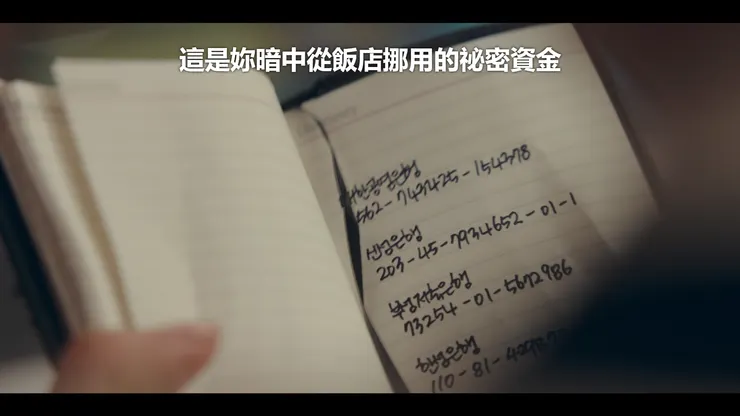 這是妳暗中從飯店挪用的祕密資金
대한광명은행
562-743425-154378
신성은행
203-45-7934652-01-1
부경저축은행
73254-01-5672986
한영은행
110-81-